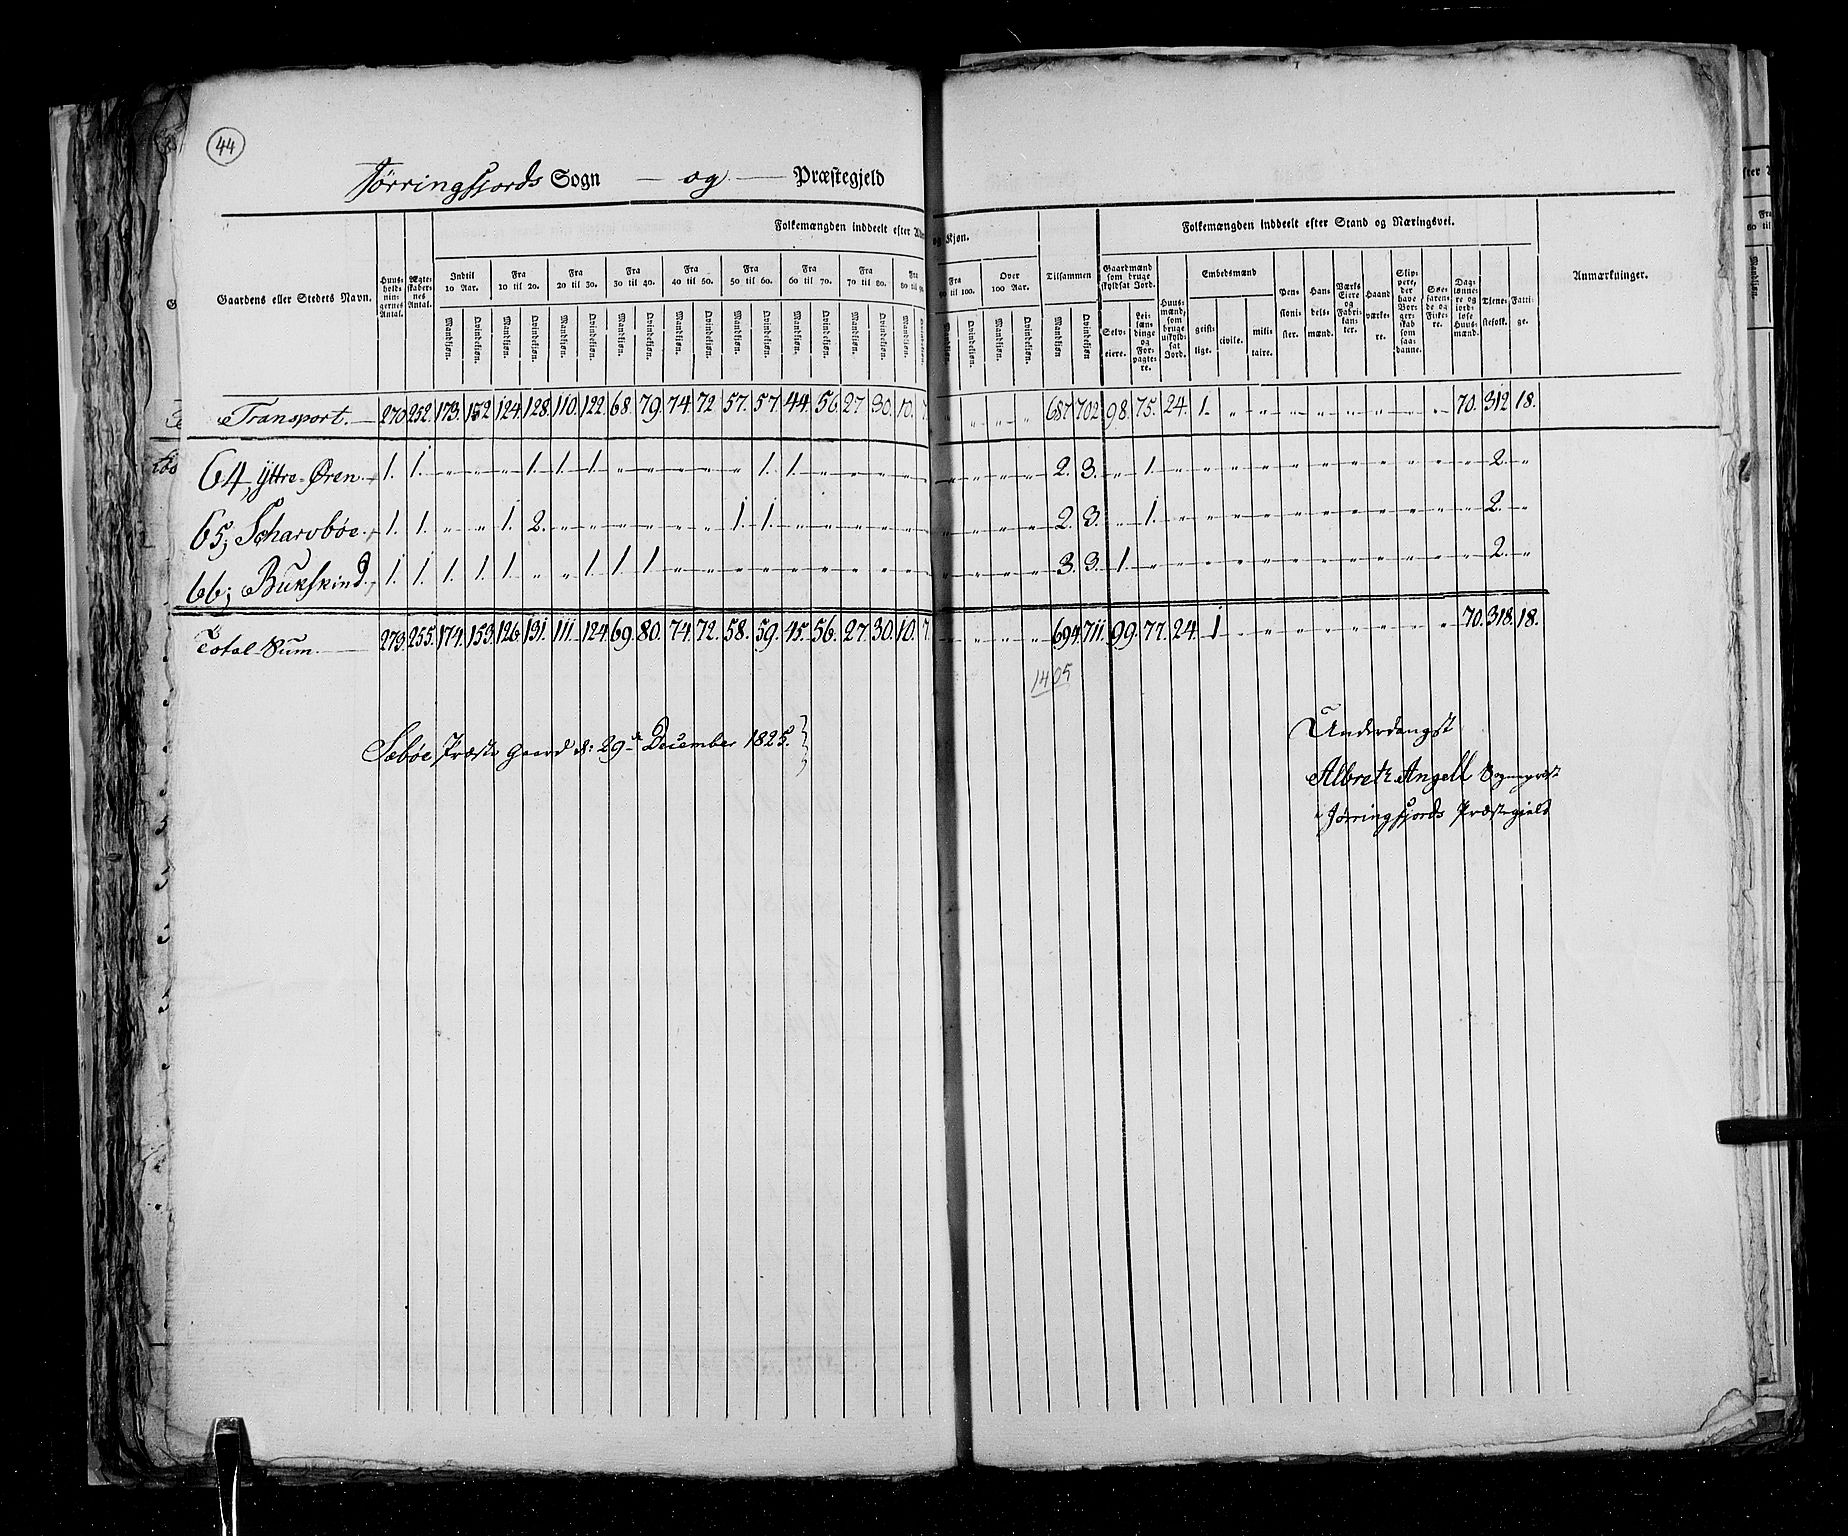 44
Tørringfjords Sogn — og — Præstegjeld
Folkemængden inddeelt efter Alder og Kjøn.
Folkemængden inddeelt efter Stand og Næringsvei.
Gaardens eller Stedets Navn.
Huusholdningernes Antal.
Ægteskabernes Antal.
Indtil 10 Aar.
Fra 10 til 20.
Fra 20 til 30.
Fra 30 til 40.
Fra 40 til 50.
Fra 50 til 60.
Fra 60 til 70.
Fra 70 til 80.
Fra 80 til 90.
Fra 90 til 100.
Over 100 Aar.
Tilsammen
Mandkjøn. Qvindekjøn.
Gaardmænd som bruge skyldsat Jord.
Selveiere.
Leilændinge og Forpagtere.
Huusmænd, som bruge uskyldsat Jord.
Embedsmænd
geistlige.
civile.
militaire.
Pensionister.
Handelsmænd.
Værkseiere og Fabrikanter.
Haandværkere.
Slippere, der have Borgerskab som saadanne.
Søefarende og Fiskere.
Daglønnere og jordløse Huusmænd.
Tjenestefolk.
Fattige.
Anmærkninger.
Transport. 270 252 173. 152 124 128. 110. 122. 68. 79. 74. 72. 57. 57. 44. 56. 27 30. 10. 7. " " " " 687 702 98. 75. 24. 1. " " " " " " " " 70. 312 18.
64, Yttre Øren 1. 1. " " " 1. 1. 1. " " " " " 1. 1. " " " " " " " " " 2. 3. " 1. " " " " " " " " " " " 2. "
65; Scharvbøe 1. 1. " " 1. 2. " " " " " " 1. 1. " " " " " " " " " " 2. 3. " 1. " " " " " " " " " " " 2. "
66; Bukskind 1. 1. 1. 1. 1. " " 1. 1. 1. " " " " " " " " " " " " " " 3. 3. 1. " " " " " " " " " " " " 2. "
Total-Sum 273. 255. 174. 153. 126. 131. 111. 124. 69. 80. 74. 72. 58. 59. 45. 56. 27. 30. 10. 7. " " " " 694 711. 99. 77. 24. 1 " " " " " " " " 70. 318. 18.
1405
Sebøe Præstegaard d: 29de December 1825.
Underdanigst
Albret Angell Sognepræst
Tørringfjords Præstegjeld